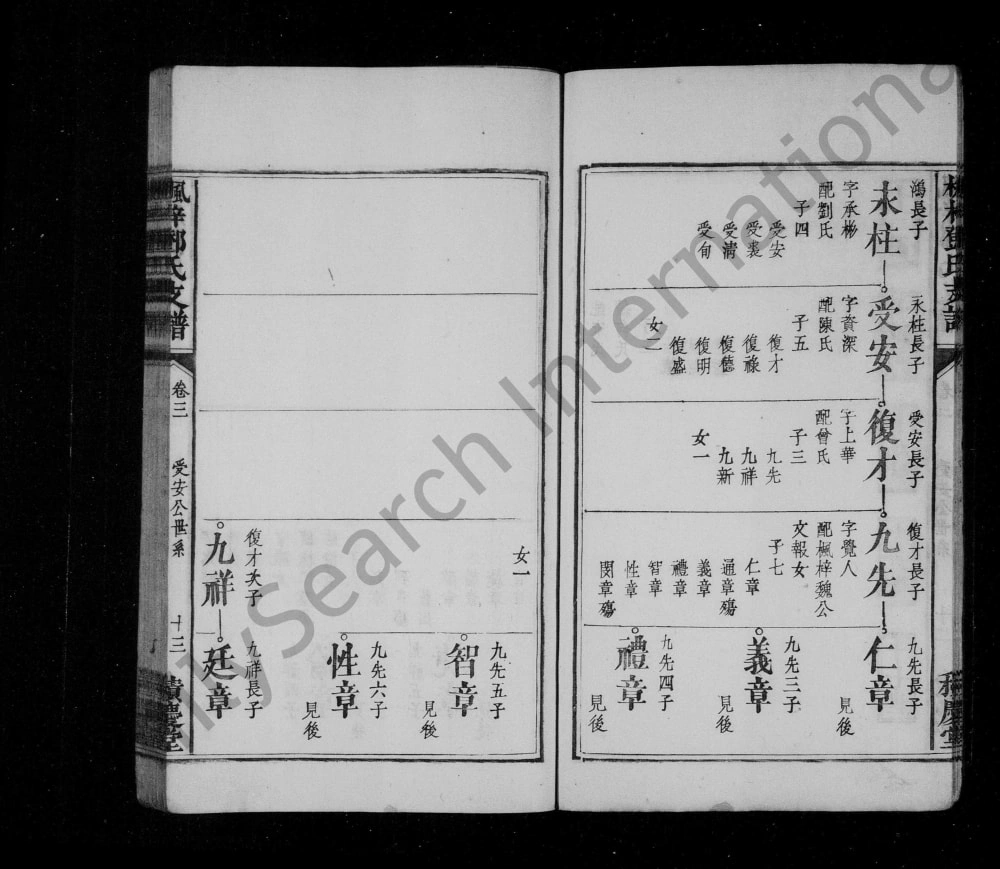 鴻長子
永柱
字承彬
配劉氏
子四
受安
受裘
受清
受旬
永柱長子
受安
字資深
配陳氏
子五
復才
復祿
復德
復明
復盛
女二
受安長子
復才
字上華
配曾氏
子三
九先
九祥
九新
女一
復才長子
九先
字覺人
配楓梓魏公
文報女
子七
仁章
通章殤
義章
禮章
智章
性章
閔章殤
九先長子
仁章
見後
九先三子
義章
見後
九先四子
禮章
見後
女一
九先五子
智章
見後
九先六子
性章
見後
復才次子
九祥
九祥長子
廷章
楓梓鄧氏支譜
卷三
受安公世系
十三
積慶堂
FamilySearch International